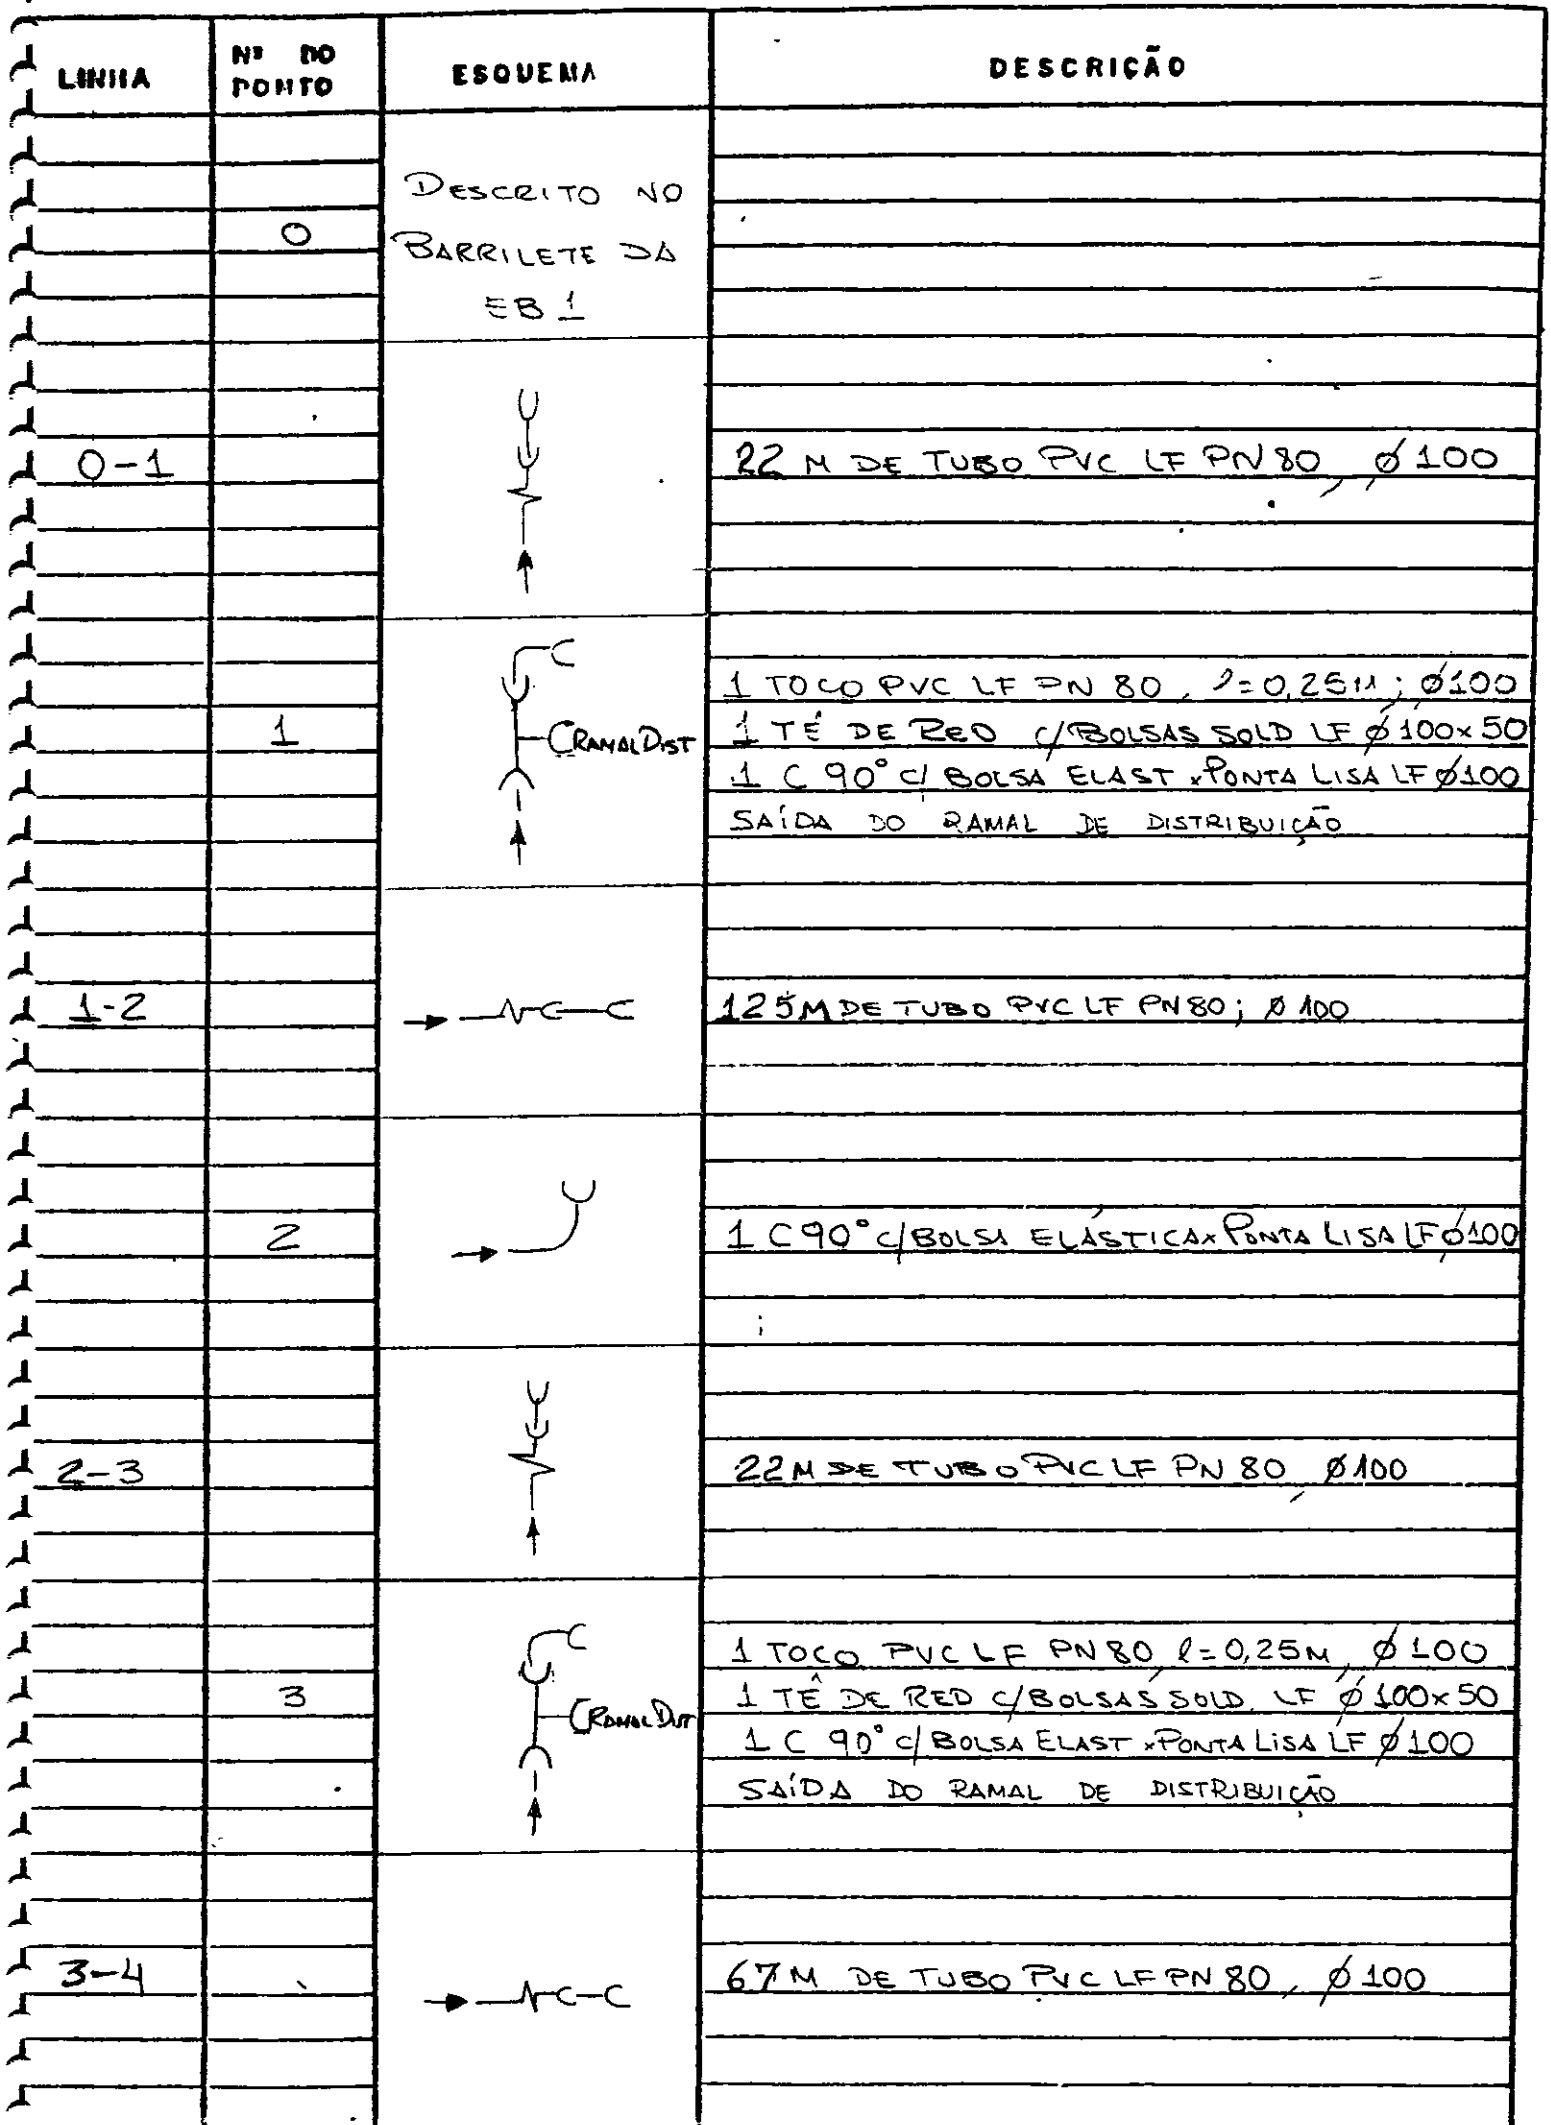 LINHA
Nº DO PONTO
ESQUEMA
DESCRIÇÃO
0
DESCRITO NO
BARRILETE DA
EB 1
0-1
22 M DE TUBO PVC LF PN 80, Ø 100
1
RAMAL DIST
1 TOCO PVC LF PN 80, l=0,25M; Ø100
1 TÊ DE RED C/BOLSAS SOLD LF Ø 100x50
1 C 90° C/ BOLSA ELAST x PONTA LISA LF Ø100
SAÍDA DO RAMAL DE DISTRIBUIÇÃO
1-2
125M DE TUBO PVC LF PN 80; Ø 100
2
1 C 90° C/BOLSA ELÁSTICA x PONTA LISA LF Ø100
2-3
22M DE TUBO PVC LF PN 80, Ø100
3
RAMAL DIST
1 TOCO PVC LF PN 80, l=0,25M, Ø 100
1 TÊ DE RED C/BOLSAS SOLD. LF Ø 100x50
1 C 90° C/ BOLSA ELAST x PONTA LISA LF Ø 100
SAÍDA DO RAMAL DE DISTRIBUIÇÃO
3-4
67M DE TUBO PVC LF PN 80, Ø 100